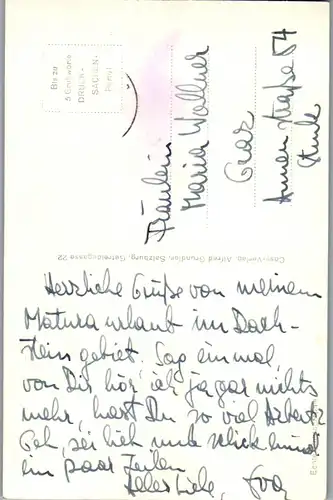 Bis zu
5 Grußworte
DRUCK-
SACHEN-
Porto!
Fräulein
Maria Wallner
Graz
Annenstraße 54
Cosy-Verlag, Alfred Gründler, Salzburg, Getreidegasse 22
Herzliche Grüße von meinem
Maturaurlaub im Dach-
steingebiet. Sag einmal,
von Dir hör ich ja gar nichts
mehr, hast Du so viel Arbeit?
Geh, sei lieb und schick einmal
ein paar Zeilen
Alles Liebe, Eva